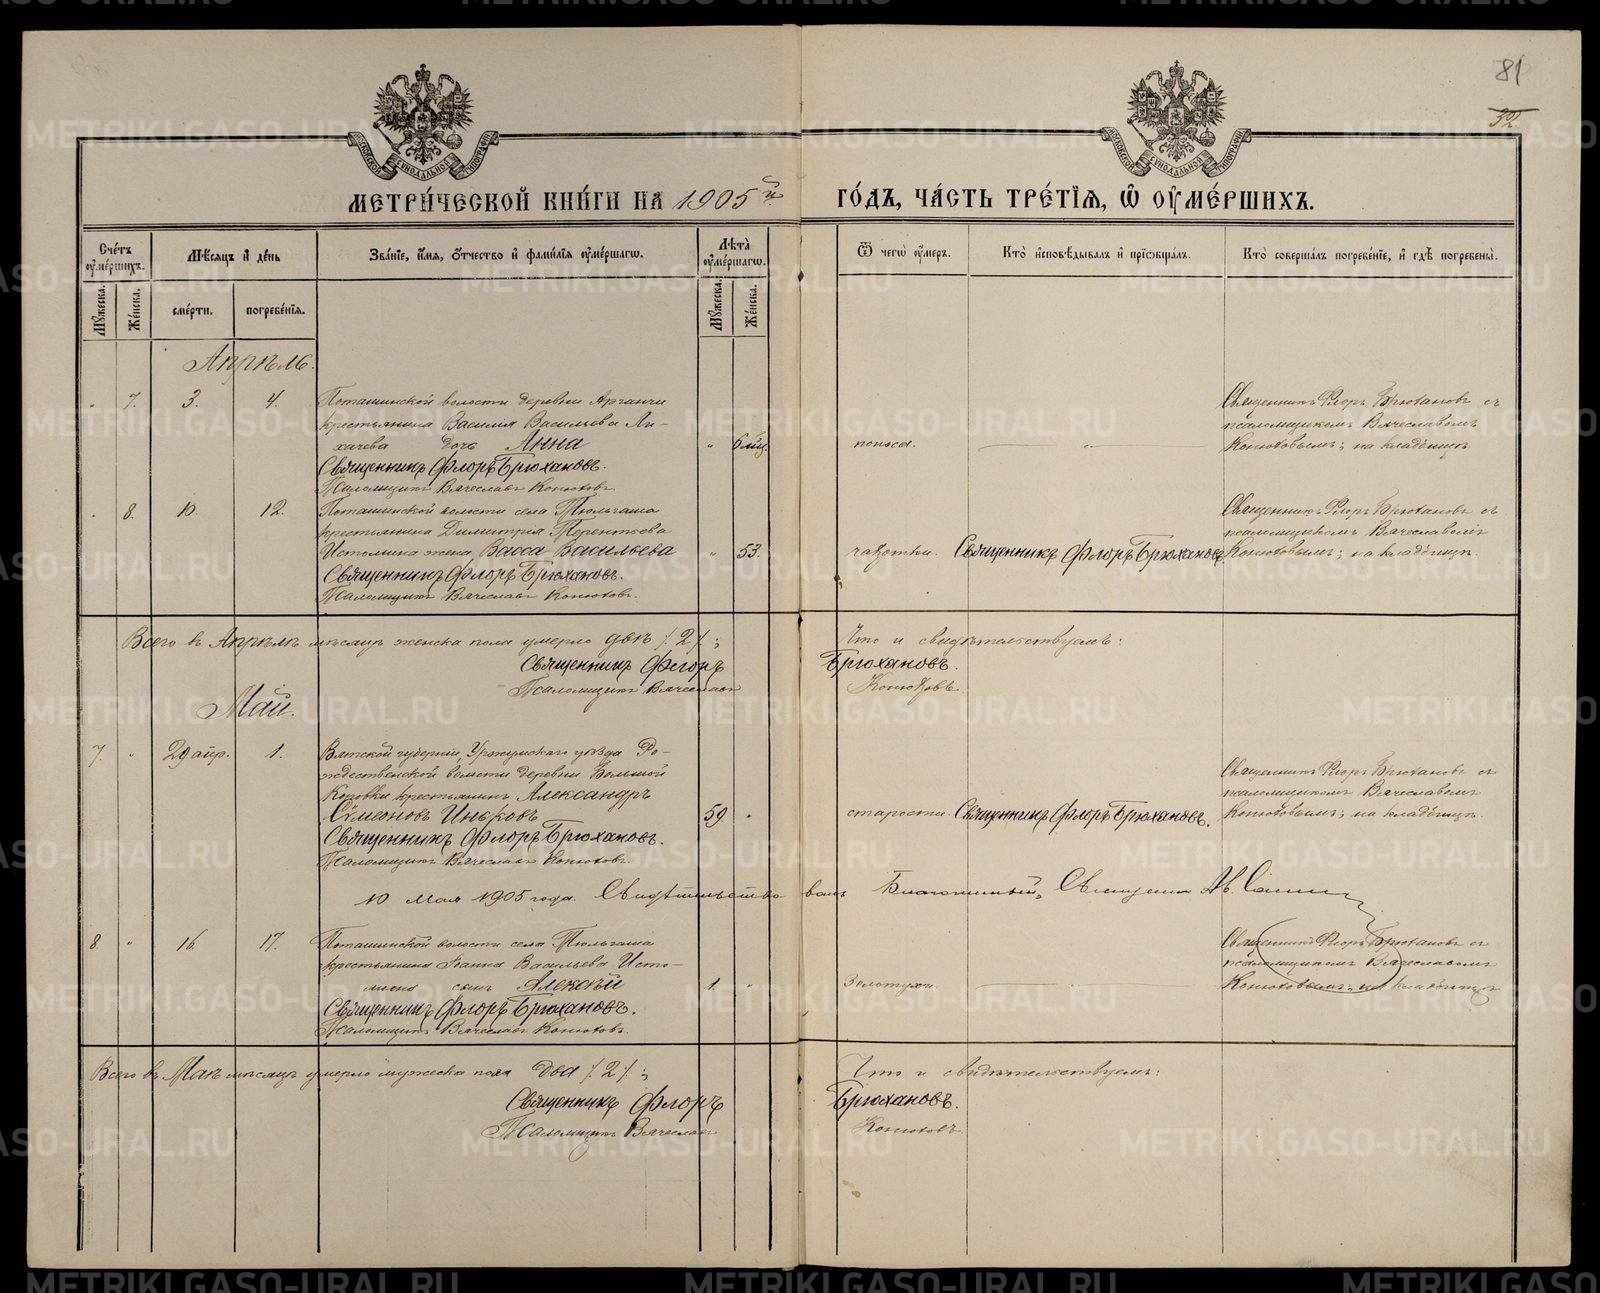 81
32
МЕТРИ́ЧЕСКОЙ КНИ́ГИ НА 1905й ГО́ДЪ, ЧА́СТЬ ТРЕ́ТІѦ, Ѿ ОУМЕ́РШИХЪ.
Сче́тъ оуме́ршихъ.
Мꙋжеска.
Же́нска.
Мѣ́сѧцъ и҆ де́нь
сме́рти.
погребе́нїѧ.
Зва́нїе, и҆́мѧ, о҆́тчество и҆ фами́лїѧ оуме́ршагѡ.
Лѣ́та оуме́ршагѡ.
Мꙋжеска.
Же́нска.
Ѿ чегѡ̀ оу́меръ.
Кто̀ и҆сповѣ́дывалъ и҆ прїѡбща́лъ.
Кто̀ соверша́лъ погребе́нїе, и҆ гдѣ̀ погребены̀.
Апрѣль.
7. 3. 4. Поташинской волости деревни Арганчи
крестьянина Василія Васильева Ли-
хачева дочь Анна " 6 мѣс. поноса. "
Священникъ Флоръ Брюхановъ.
Псаломщикъ Вячеславъ Конюховъ.
Священникъ Флоръ Брюхановъ съ
псаломщикомъ Вячеславомъ
Конюховымъ; на кладбищѣ
8. 10. 12. Поташинской волости села Тюльгаша
крестьянина Димитрія Терентьева
Истомина жена Васса Васильева " 53. чахотки. Священникъ Флоръ Брюхановъ.
Священникъ Флоръ Брюхановъ.
Псаломщикъ Вячеславъ Конюховъ.
Священникъ Флоръ Брюхановъ съ
псаломщикомъ Вячеславомъ
Конюховымъ; на кладбищѣ.
Всего въ Апрѣлѣ мѣсяцѣ женска пола умерло двѣ /2/; Что и свидѣтельствуемъ:
Священникъ Флоръ Брюхановъ.
Псаломщикъ Вячеславъ Конюховъ.
Май.
7. " 29 апр. 1. Вятской губерніи, Уржумскаго уѣзда Ро-
ждественской волости деревни Большой
Коповки крестьянинъ Александръ
Симеоновъ Иньковъ 59 " старости. Священникъ Флоръ Брюхановъ.
Священникъ Флоръ Брюхановъ.
Псаломщикъ Вячеславъ Конюховъ.
Священникъ Флоръ Брюхановъ съ
псаломщикомъ Вячеславомъ
Конюховымъ; на кладбищѣ.
10 Мая 1905 года. Свидѣтельствовалъ Благочинный, Священникъ
8. " 16. 17. Поташинской волости села Тюльгаша
крестьянина Іоанна Васильева Исто-
мина сынъ Алексѣй 1. " Золотухи.
Священникъ Флоръ Брюхановъ.
Псаломщикъ Вячеславъ Конюховъ.
Священникъ Флоръ Брюхановъ съ
псаломщикомъ Вячеславомъ
Конюховымъ; на кладбищѣ
Всего въ Маѣ мѣсяцѣ умерло мужеска пола два /2/; Что и свидѣтельствуемъ:
Священникъ Флоръ Брюхановъ.
Псаломщикъ Вячеславъ Конюховъ.
METRIKI.GASO-URAL.RU